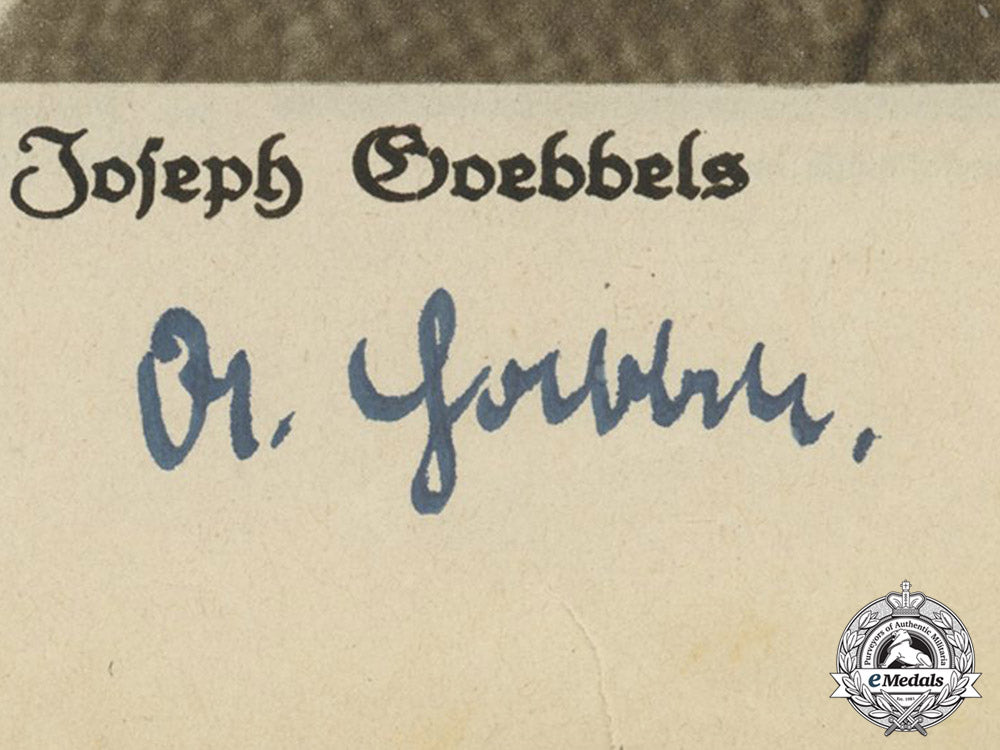 Joseph Goebbels
Dr. Goebbels.
Purveyors of Authentic Militaria
eMedals
Est. 1983